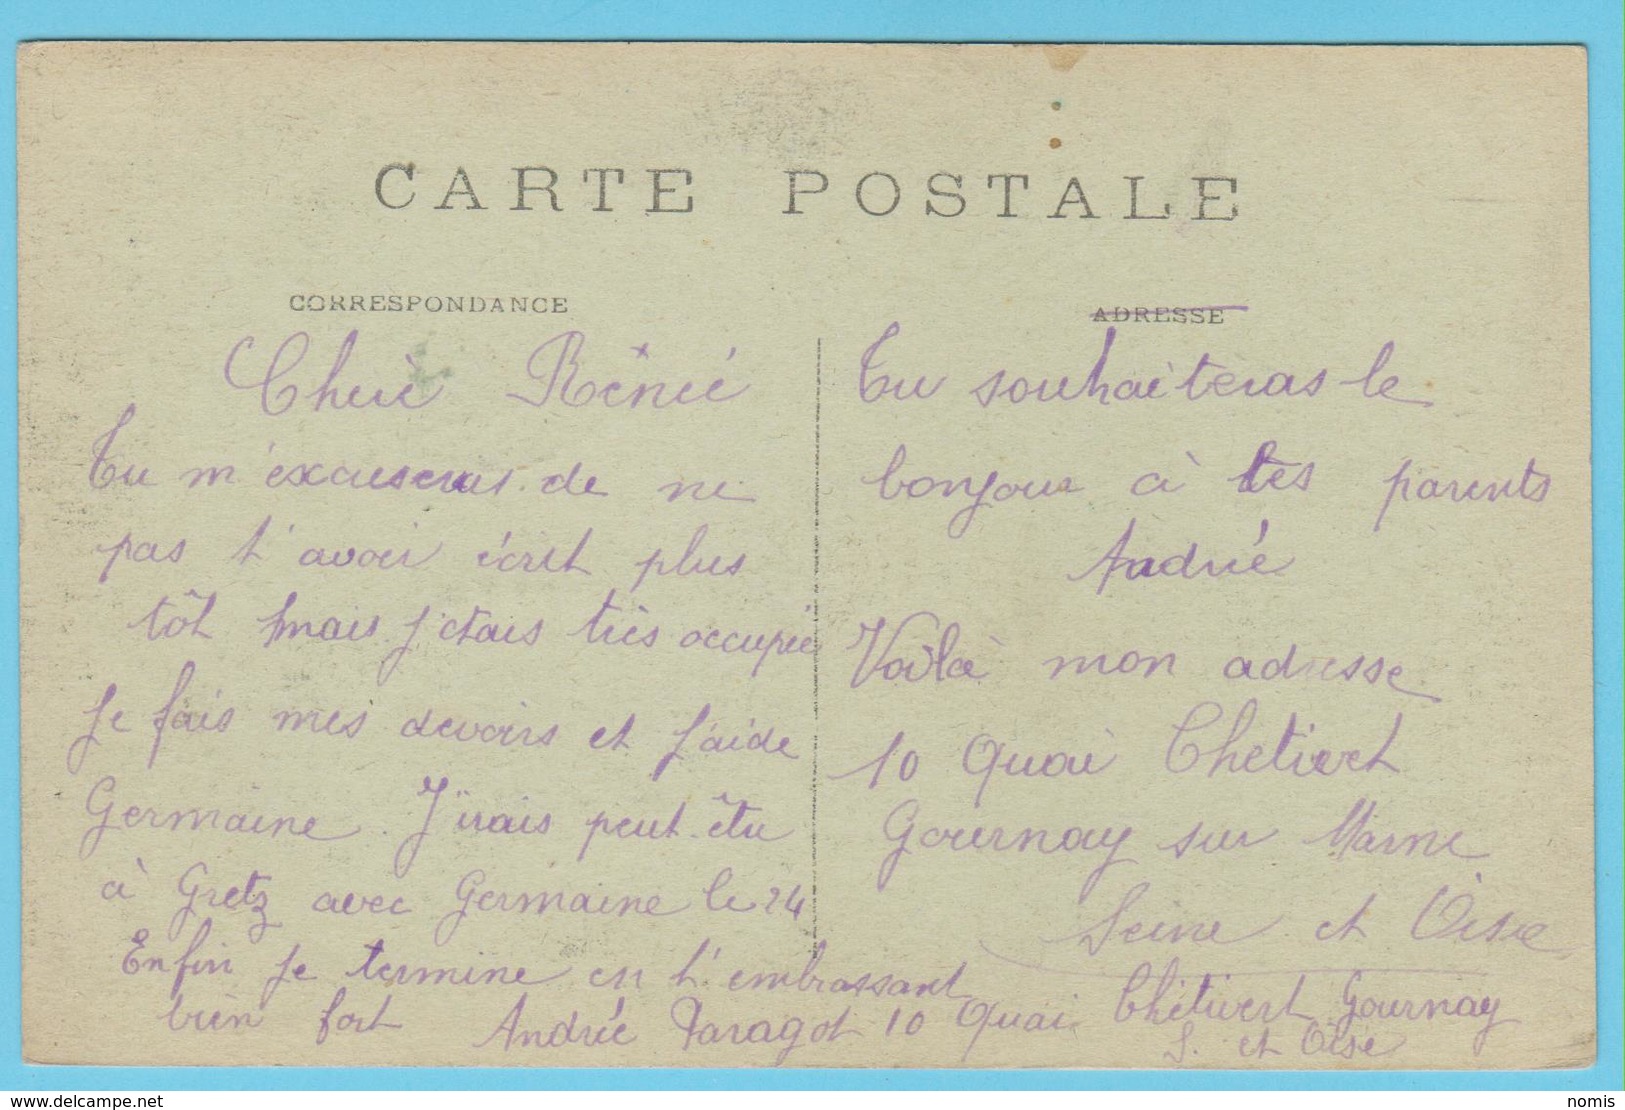 CARTE POSTALE
CORRESPONDANCE
Chère Rénée
Tu m'excuseras de ne
pas t'avoir écrit plus
tôt mais j'étais très occupée
Je fais mes devoirs et j'aide
Germaine. J'irais peut-être
à Gretz avec Germaine le 24
Enfin je termine en t'embrassant
bien fort Andrée Paragot 10 Quai Chétivert Gournay
S. et Oise
ADRESSE
Tu souhaiteras le
bonjour à tes parents
Andrée
Voilà mon adresse
10 Quai Chetivert
Gournay sur Marne
Seine et Oise
www.delcampe.net
nomis